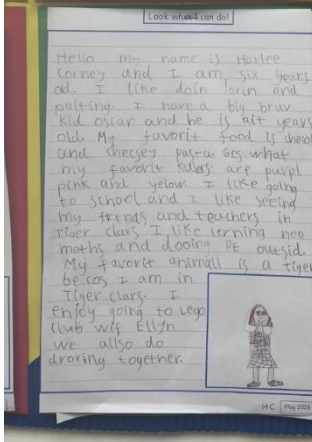 Look what I can do!
Hello my name is Haylee
Corney and I am six years
od. I like doin orin and
paiting. I have a big bruv
kld oscar and he is ait years
old. My favorit food is
and cheesey pasta. Ges what
my favorit kulers are purpl
pink and yelow. I like going
to school and I like seeing
my frends and teachers in
Tiger clars. I like lerning noo
maths and dooing PE outsid.
My favorit animall is a tiger
be cos I am in
Tiger clars. I
enjoy going to Lego
club wif Ellyn
we allso do
droring together.
H·C May 2024